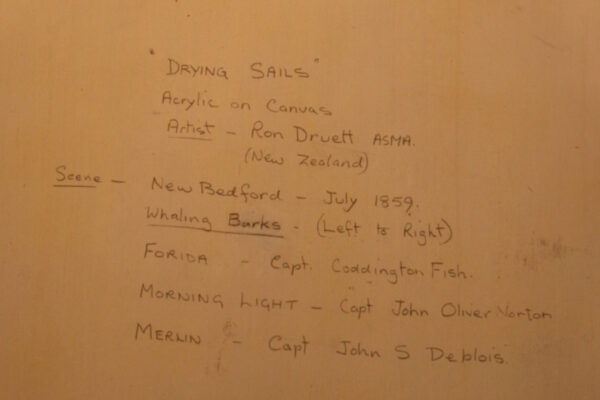 "DRYING SAILS"
Acrylic on Canvas
Artist - Ron Druett ASMA.
(New Zealand)
Scene - New Bedford - July 1859.
Whaling Barks - (Left to Right)
FORIDA - Capt. Coddington Fish.
MORNING LIGHT - Capt John Oliver Norton
MERLIN - Capt John S Deblois.